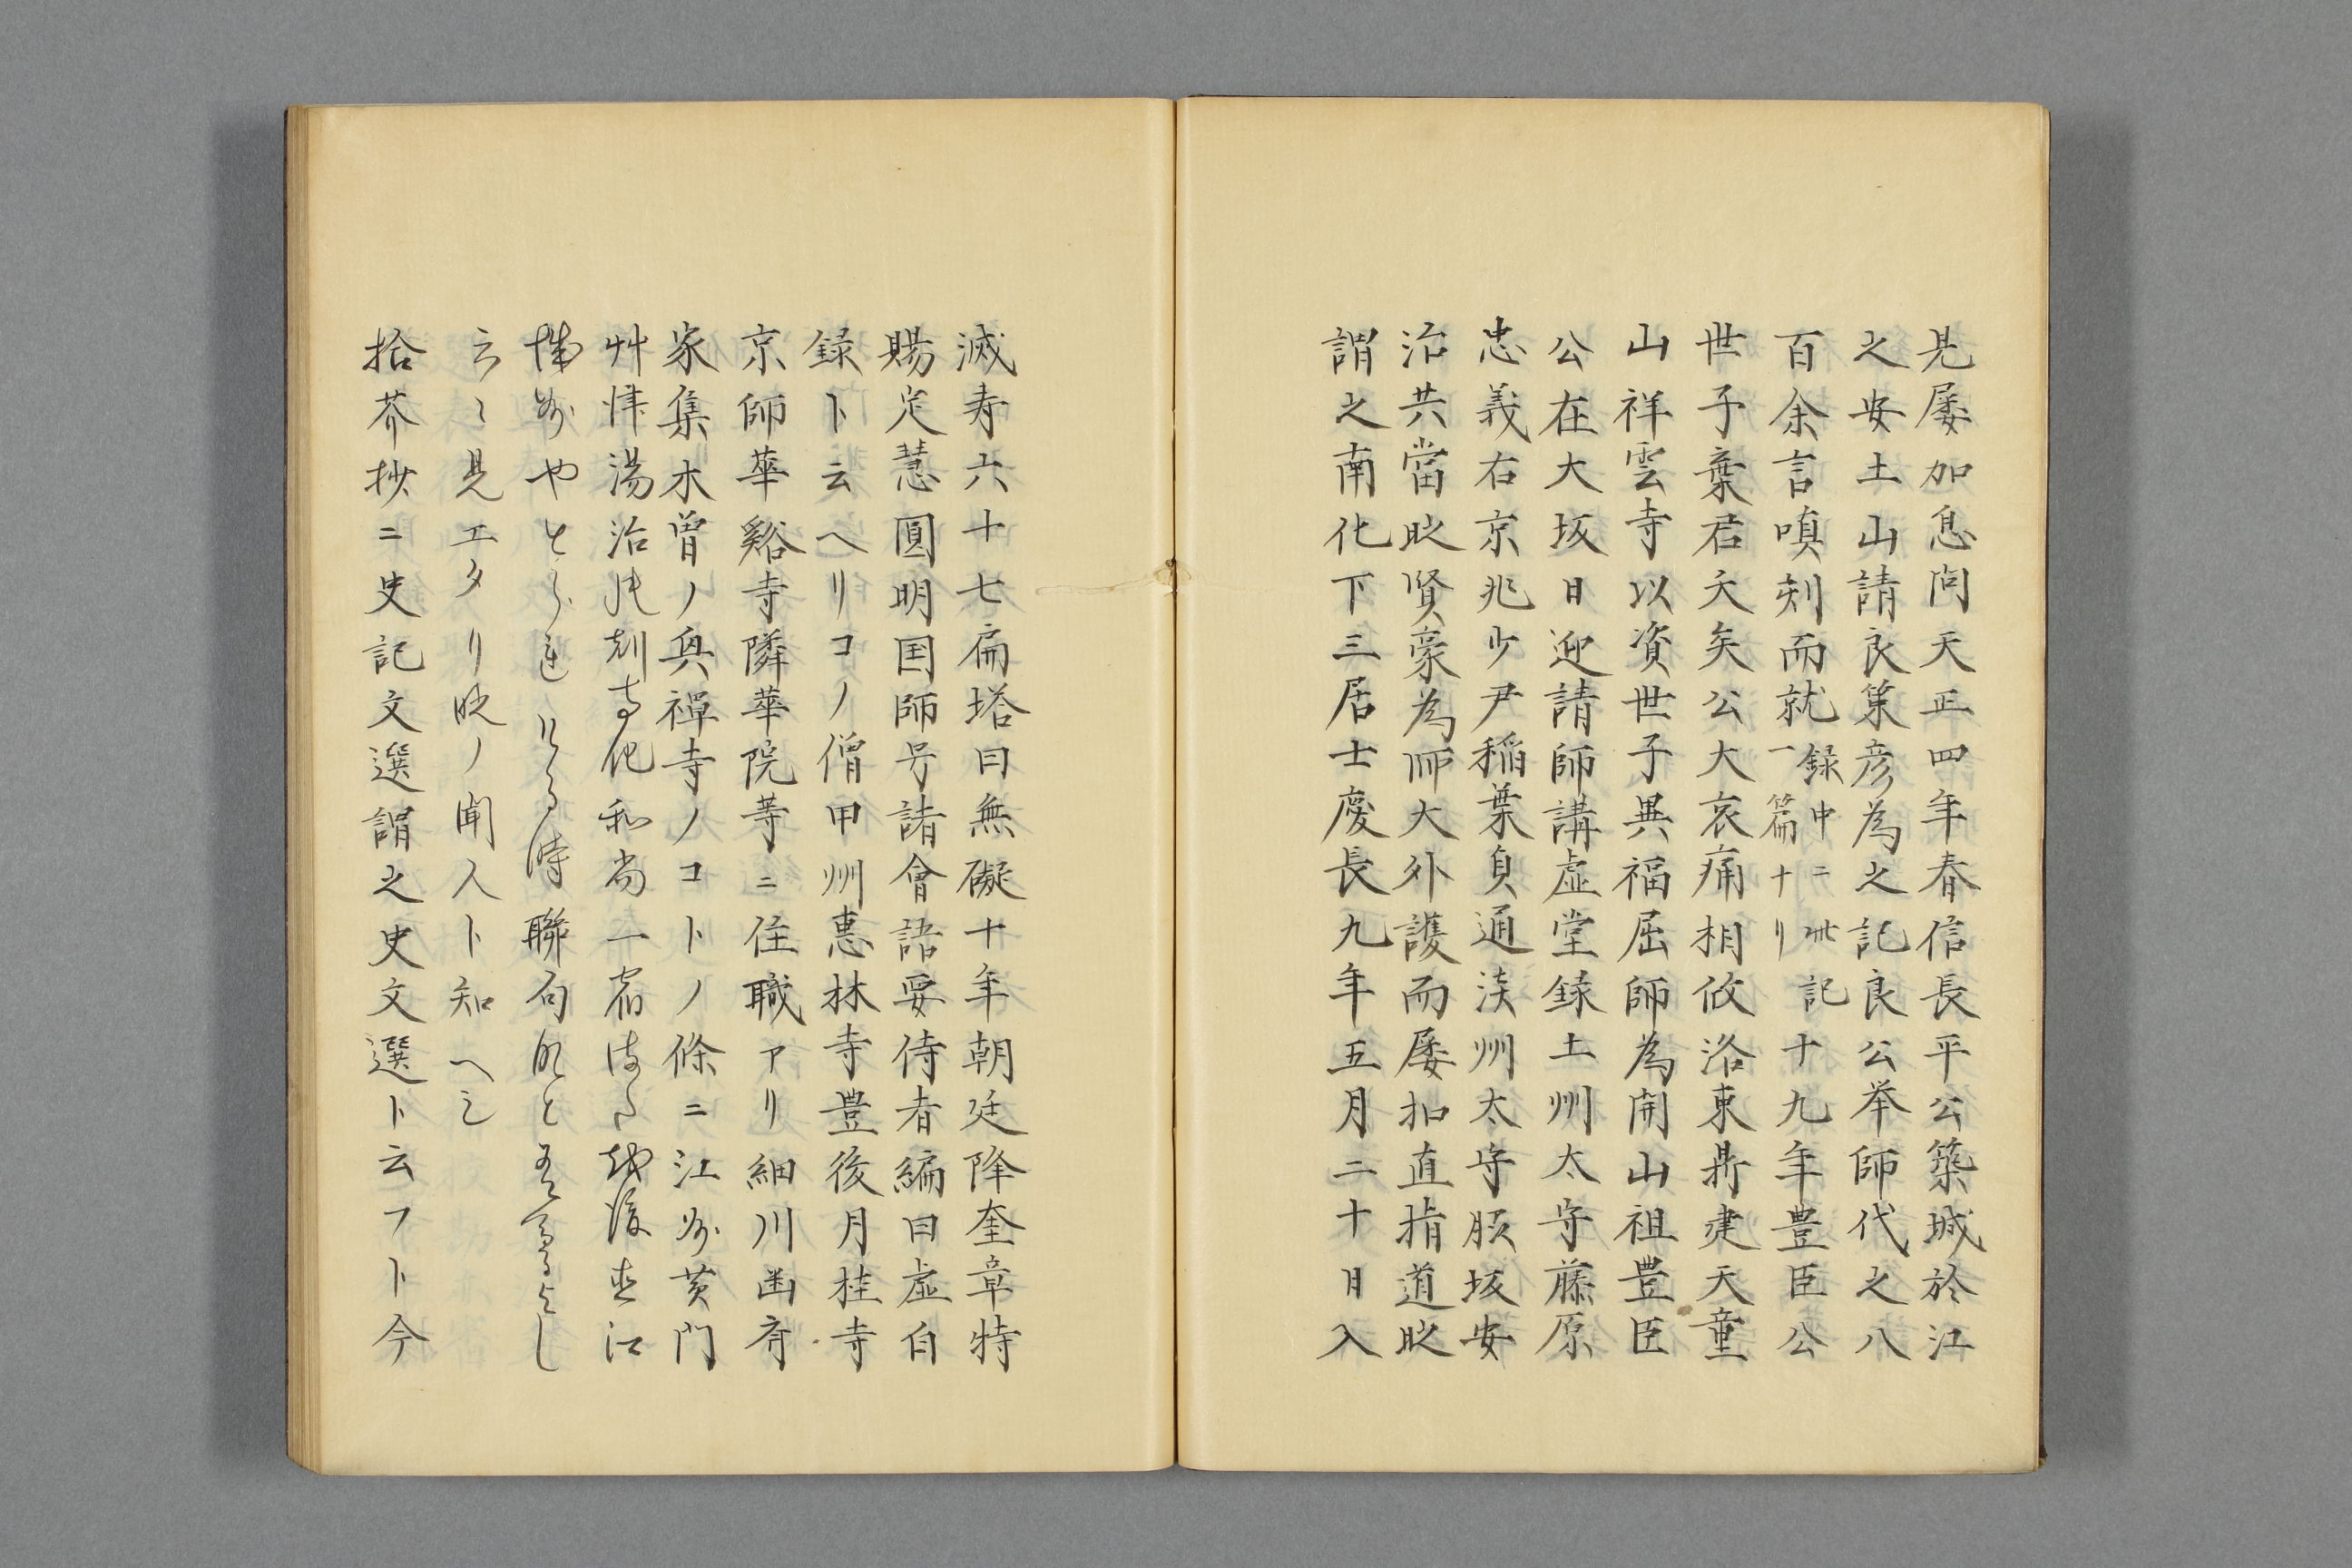 見屡加恩問天正四年春信長平公築城於江
之安土山請良策彦為之記良公举師代之八
百余言嗔刻而就
録中ニ此記
一篇十リ
十九年豊臣公
世子棄君夭矣公大哀痛相攸洛東斯建天童
山祥雲寺以資世子異福屈師為開山祖豊臣
公在大坂日迎請師講虚堂録土州太守藤原
忠義右京兆少尹稲葉貞通淡州太守脇坂安
治共當時賢豪為師大外護而屡扣直指道時
謂之南化下三居士慶長九年五月二十日入
滅寿六十七扁塔曰無礙十年朝廷降奎章特
賜定慧圓明国師号諸會語要侍者編曰虚白
録ト云ヘリコノ僧甲州惠林寺豊後月桂寺
京師華谿寺隣華院等ニ住職アリ細川幽斉
家集木曽ノ興禪寺ノコトノ條ニ江州黄門
艸津湯治 南化和尚一宿 越後直江
聯句
云〻見エタリ時ノ聞人ト知ヘし
拾芥抄ニ史記文選謂之史文選ト云フト今